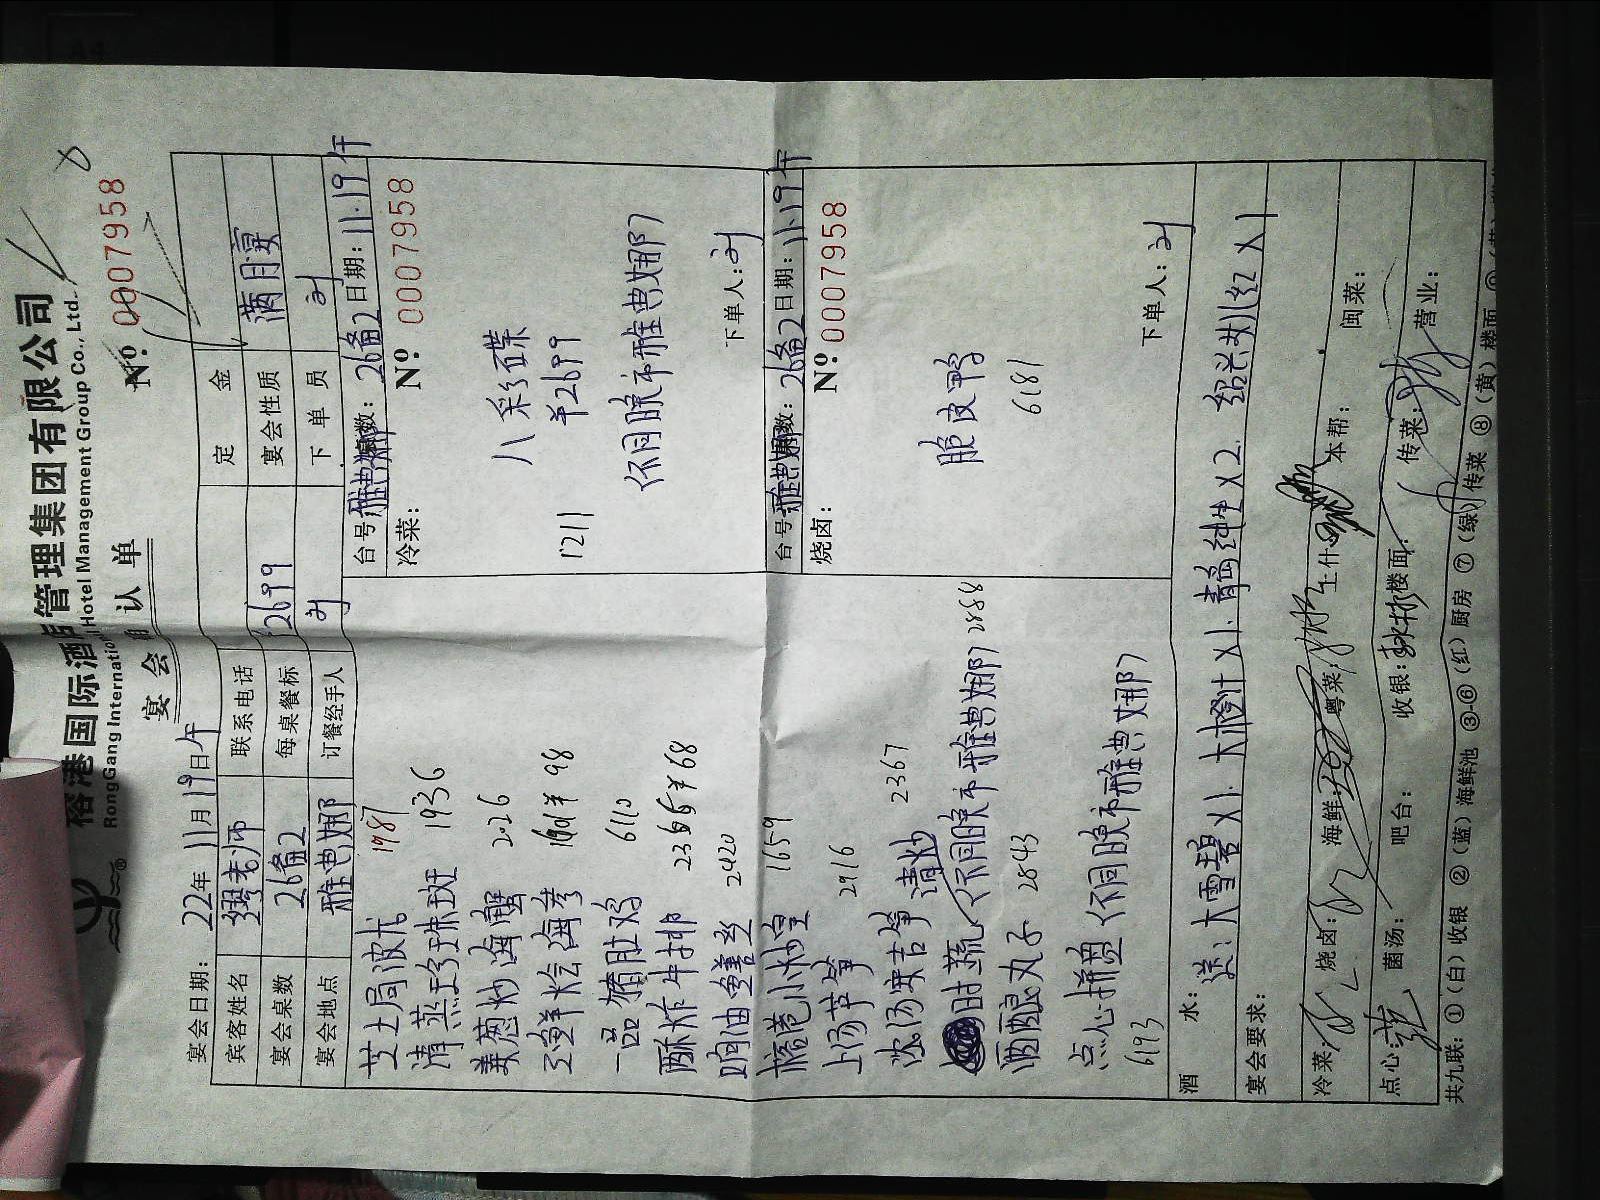 裕港国际酒店管理集团有限公司
RongGang International Hotel Management Group Co., Ltd.
宴会确认单
№: 0007958
宴会日期: 22年 11月 19日 午
宾客姓名 缪老师 联系电话 定金
宴会桌数 26备2 每桌餐标 2699 宴会性质 满月宴
宴会地点 雅典娜 订餐经手人 刘 下单员 刘
芝士局波龙 1987
清蒸珍珠斑 1936
姜葱炒海蟹 2026
三鲜烩海参 ¥98
一品猪肚鸡 6110
酥炸牛排 2366 ¥68
响油鳝丝 2420
檐巷小炒皇 1659
上汤芦笋 2916
浓汤安吉笋 清炒 2367
时蔬(不同晚市雅典娜) 2888
酒酿丸子 2843
点心拼盘(不同晚市雅典娜)
6193
台号 雅典娜 桌数: 26备2 日期: 11.19午
冷菜: № 0007958
八彩碟
1211 ¥2699
(不同晚市雅典娜)
下单人: 刘
台号 雅典娜 桌数: 26备2 日期: 11.19午
烧卤: № 0007958
脆皮鸭
6181
下单人: 刘
酒水: 送: 大雪碧X1. 大橙汁X1. 青岛纯生X2. 绍兴女儿红X1
宴会要求:
冷菜: 烧卤: 海鲜: 粤菜: 上什: 本帮: 闽菜:
点心: 菌汤: 吧台: 收银: 楼面: 传菜: 营业:
共九联: ①(白)收银 ②(蓝)海鲜池 ③-⑥(红)厨房 ⑦(绿)传菜 ⑧(黄)楼面